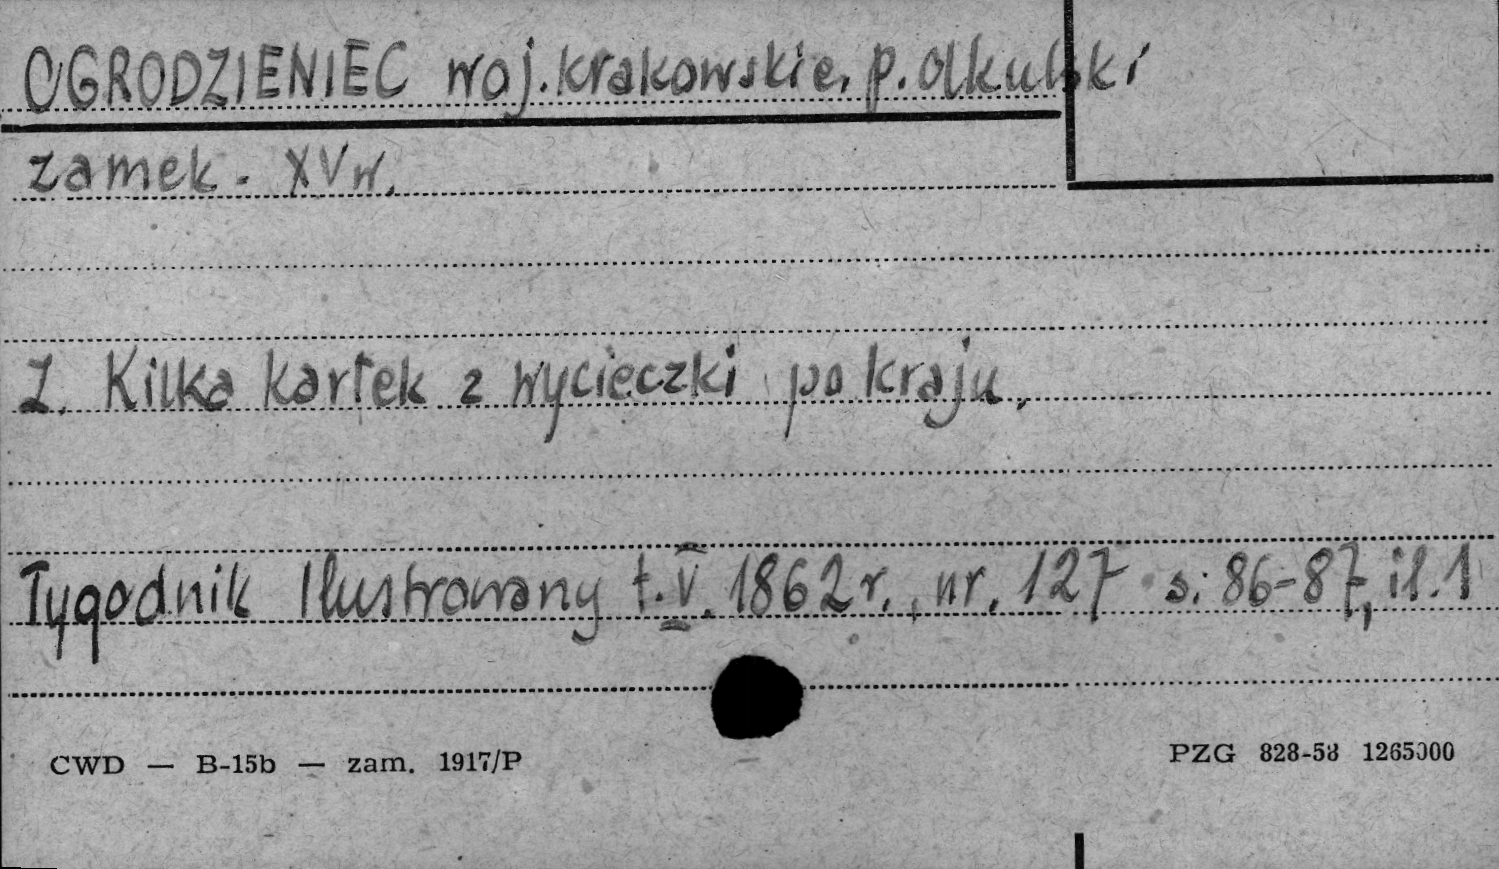 OGRODZIENIEC woj. krakowskie, p. olkuski
zamek. XV w.
Z. Kilka kartek z wycieczki po kraju.
Tygodnik Ilustrowany t. V. 1862 r., nr. 127 s: 86-87, il. 1
CWD — B-15b — zam. 1917/P
PZG 828-58 1265000